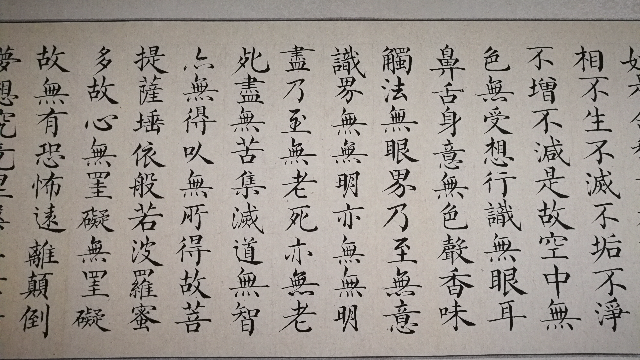 相不生不滅不垢不淨
不增不減是故空中無
色無受想行識無眼耳
鼻舌身意無色聲香味
觸法無眼界乃至無意
識界無無明亦無無明
盡乃至無老死亦無老
死盡無苦集滅道無智
亦無得以無所得故菩
提薩埵依般若波羅蜜
多故心無罣礙無罣礙
故無有恐怖遠離顛倒
夢想究竟